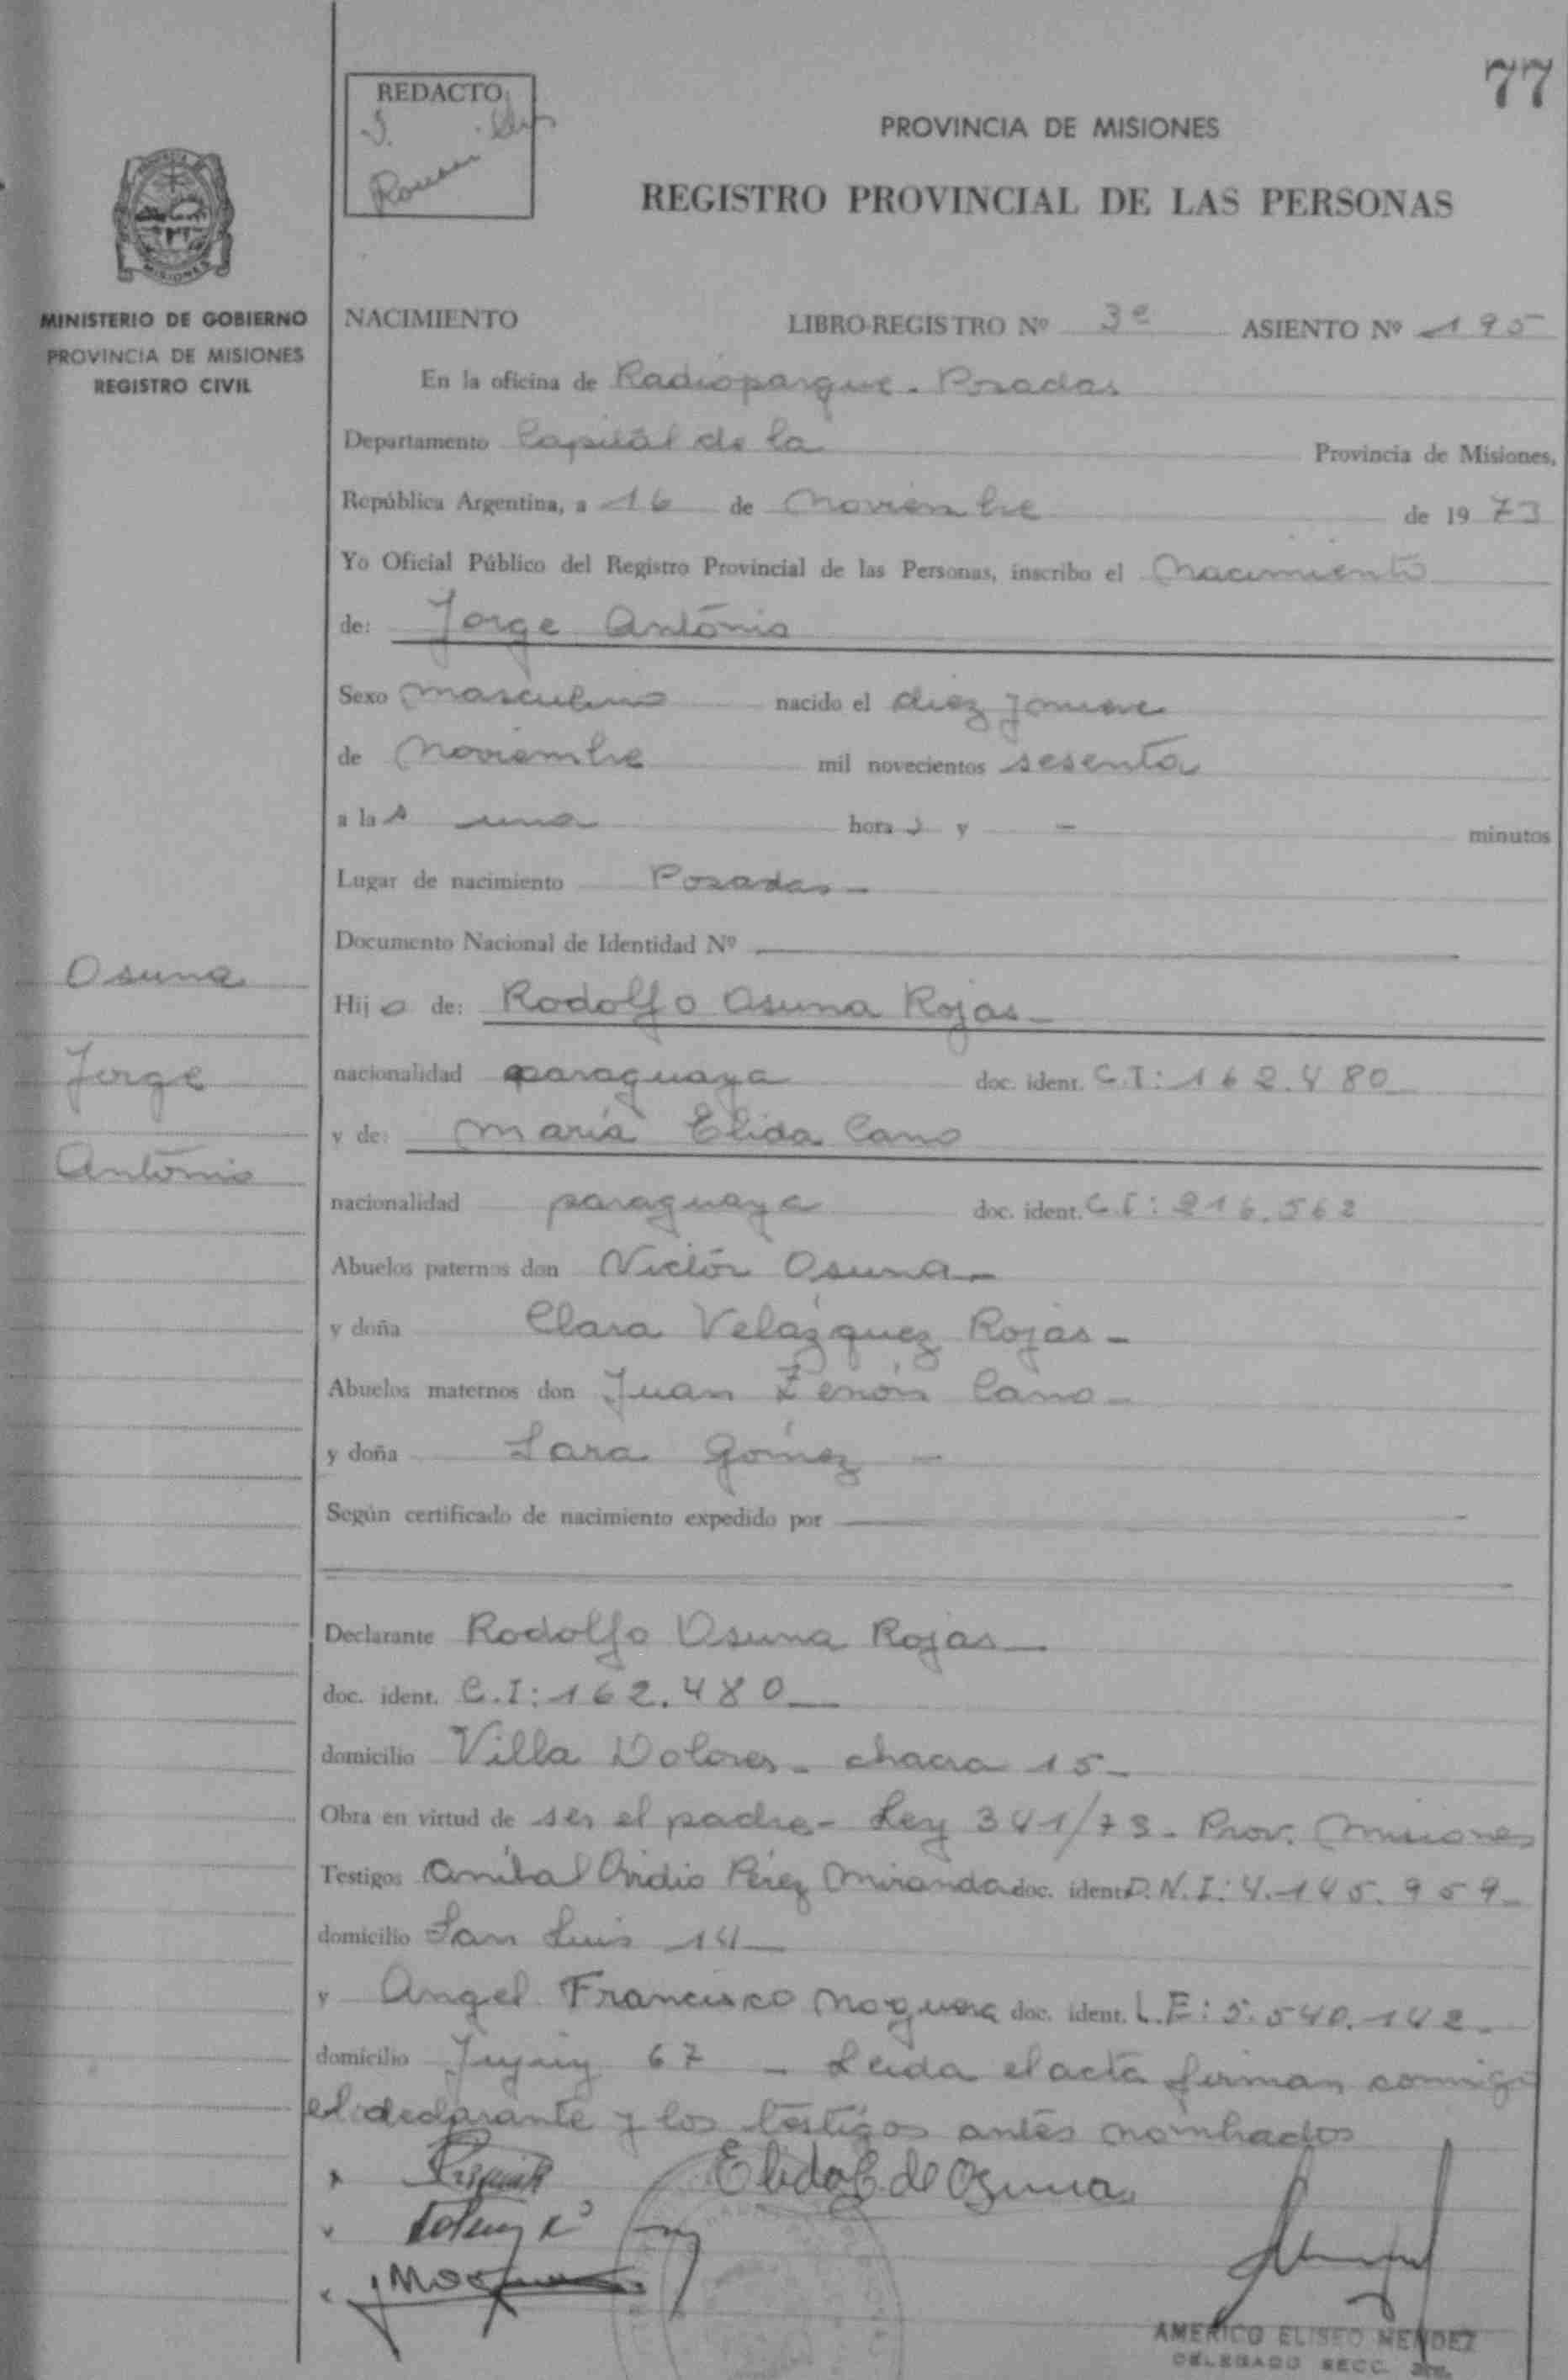 77
REDACTO
PROVINCIA DE MISIONES
REGISTRO PROVINCIAL DE LAS PERSONAS
MISIONES
MINISTERIO DE GOBIERNO
PROVINCIA DE MISIONES
REGISTRO CIVIL
NACIMIENTO LIBRO-REGISTRO Nº 3º ASIENTO Nº 195
En la oficina de Radioparque - Posadas
Departamento Capital de la Provincia de Misiones,
República Argentina, a 16 de Noviembre de 1973
Yo Oficial Público del Registro Provincial de las Personas, inscribo el Nacimiento
de: Jorge Antonio
Sexo masculino nacido el diez y nueve
de Noviembre mil novecientos sesenta
a las una hora y - minutos
Lugar de nacimiento Posadas -
Documento Nacional de Identidad Nº
Osuna
Jorge
Antonio
Hijo de: Rodolfo Osuna Rojas -
nacionalidad paraguaya doc. ident. C.I: 162.480
y de: María Elida Cano
nacionalidad paraguaya doc. ident. C.I: 216.562
Abuelos paternos don Victór Osuna -
y doña Clara Velázquez Rojas -
Abuelos maternos don Juan Zenón Cano -
y doña Sara Gómez -
Según certificado de nacimiento expedido por
Declarante Rodolfo Osuna Rojas -
doc. ident. C.I: 162.480 -
domicilio Villa Dolores - chacra 15 -
Obra en virtud de ser el padre - Ley 341/73 - Prov. Misiones
Testigos Anibal Ovidio Pérez Miranda doc. ident. D.N.I: 4.145.959 -
domicilio San Luis 14 -
y Angel Francisco Noguera doc. ident. L.E: 5.540.142 -
domicilio Jujuy 67 - Leida el acta firman conmigo
el declarante y los testigos antes nombrados
Elida C. de Osuna
AMERICO ELISEO MENDEZ
DELEGADO SECC.